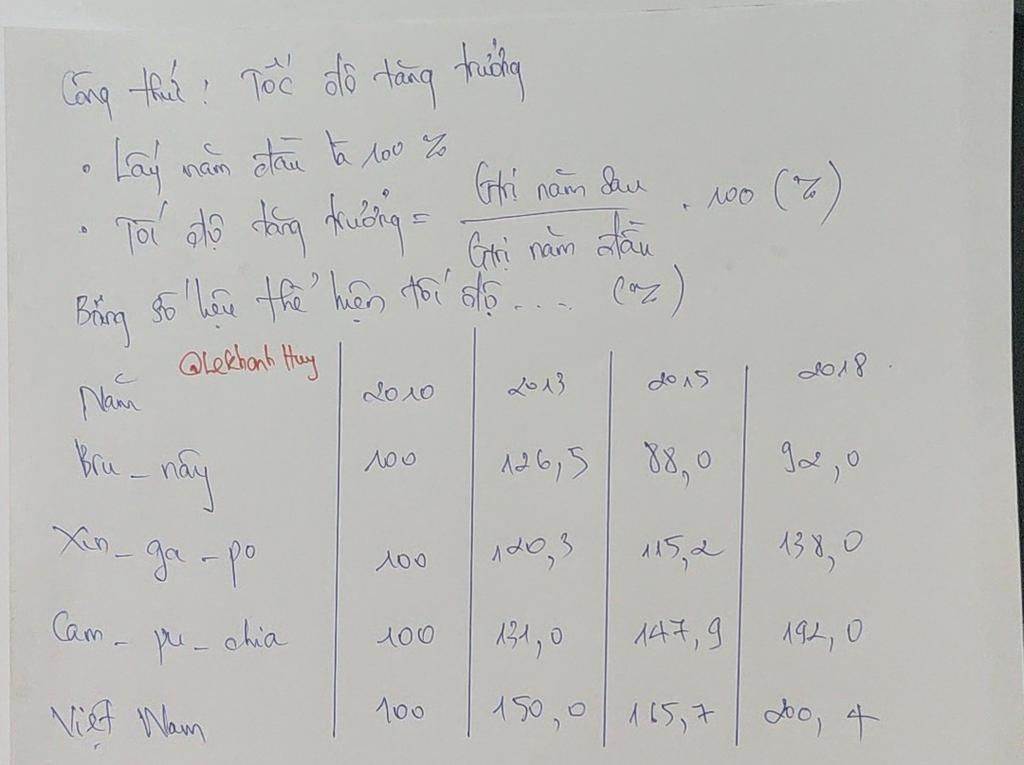 Công thức: Tốc độ tăng trưởng
• Lấy năm đầu là 100 %
• Tốc độ tăng trưởng = Gtrị năm sau / Gtrị năm đầu . 100 (%)
Bảng số liệu thể hiện tốc độ .... (%)
@LeKhanhHuy
Năm 2010 2013 2015 2018
Bru_nây 100 126,5 88,0 92,0
Xin_ga_po 100 120,3 115,2 138,0
Cam_pu_chia 100 131,0 147,9 192,0
Việt Nam 100 150,0 165,7 200,4